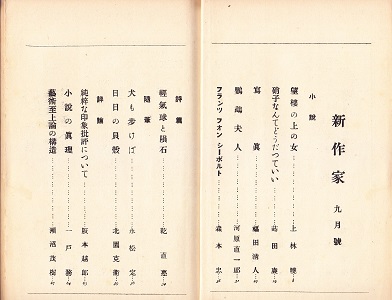 新作家 九月號
小說
望樓の上の女………上林曉
硝子なんてどうだつていい………蒔田廉
寫眞………福田淸人
鸚鵡夫人………河原直一郎
フランツ フオン シーボルト………森本忠
詩篇
輕氣球と隕石………乾直惠
隨筆
犬も步けば………永松定
日日の貝殼………北園克衞
評論
純粹な印象批評について………阪本越郎
小說の眞理………一戶務
藝術至上論の構造………瀨沼茂樹